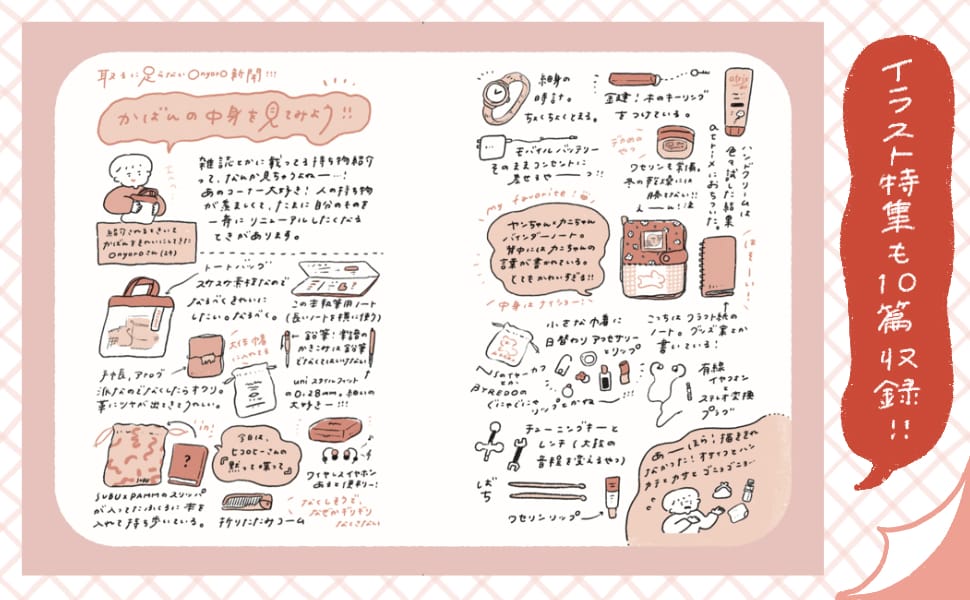 取るに足らないonyoro新聞!!!
かばんの中身を見てみよう!!
雑誌とかに載ってる持ち物紹介
って、なんか見ちゃうよねー…!
あのコーナー大好き! 人の持ち物
が羨ましくて、たまに自分のものを
一斉にリニューアルしたくなる
ときがあります。
紹介されるときいて
かばんをきれいにしてきた
onyoroさん(24)
トートバッグ
スケスケ素材なので
なるべくきれいに
したい。なるべく。
この手帳、アナログ
派なのでなくしたらオワリ。
革にツヤが出てきてうれしい。
大体巾着
に入れてる
この主執筆用ノート
(長いノートを横に使う)
鉛筆! 楽譜の
かきこみは鉛筆
でなくてはいけない
uni スタイルフィット
の0.28mm。細いの
大好きー!!!
in!
SUBU×PAMMのスリッパ
が入ってたふくろに本を
入れて持ち歩いている。
?
今日は、
ヒコロヒーさんの
『黙って喋って』
折りたたみコーム
ワイヤレスイヤホン
あると便利ー!
なくしそうで、
なぜかギリギリ
なくさない
細身の
時計。
ちょくちょくとまる。
金鍵! 木のキーリング
をつけている。
atrix
モバイルバッテリー
そのままコンセントに
差せるやーーつ!!
デカめの
やつ
ワセリンも常備。
冬の乾燥には
勝てない!!
ハンドクリームは
色々試した結果
atrixにおちついた。
my favorite!
ヤンちゃんとカニちゃん
バインダーノート。
背中にはカニちゃんの
言葉が書かれている。
とてもかわいすぎる!!
中身はナイショー!
こっちはクラフト紙の
ノート。グッズ案とか
書いている!
小さな巾着に
日替わり アクセサリー
とリップ。
BYREDOの
有線
イヤフォンと
ステレオ変換
プラグ
チューニングキーと
レンチ(太鼓の
音程を変えるやつ)
ばち
ワセリンリップ
あーほら! 描ききれ
なかった! オサイフとハン
カチとカサとゴニョゴニョ…
イラスト特集も10篇収録!!